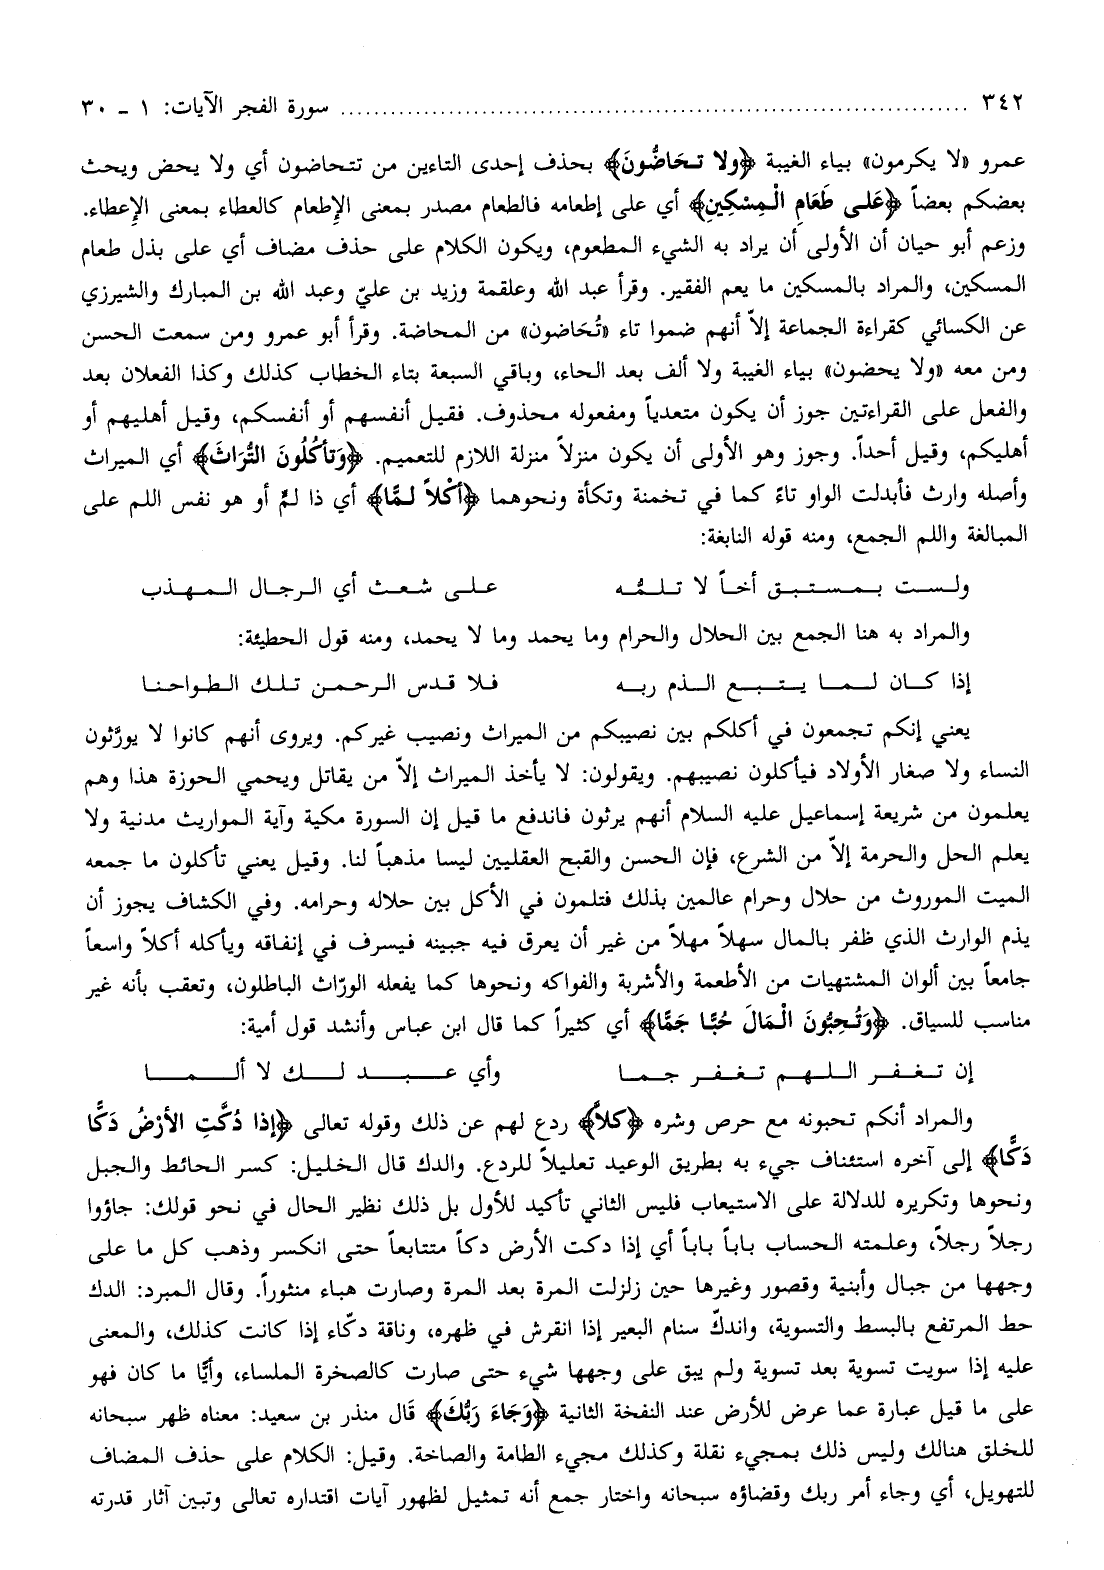 ٣٤٢ ........................................................ سورة الفجر الآيات: ١ ـ ٣٠
عمرو «لا يكرمون» بياء الغيبة ﴿ولا تحَاضُّونَ﴾ بحذف إحدى التاءين من تتحاضون أي ولا يحض ويحث
بعضكم بعضاً ﴿عَلى طَعَامِ الْمِسْكِينِ﴾ أي على إطعامه فالطعام مصدر بمعنى الإطعام كالعطاء بمعنى الإعطاء.
وزعم أبو حيان أن الأولى أن يراد به الشيء المطعوم، ويكون الكلام على حذف مضاف أي على بذل طعام
المسكين، والمراد بالمسكين ما يعم الفقير. وقرأ عبد الله وعلقمة وزيد بن عليّ وعبد الله بن المبارك والشيرزي
عن الكسائي كقراءة الجماعة إلاّ أنهم ضموا تاء «تُحَاضون» من المحاضة. وقرأ أبو عمرو ومن سمعت الحسن
ومن معه «ولا يحضون» بياء الغيبة ولا ألف بعد الحاء، وباقي السبعة بتاء الخطاب كذلك وكذا الفعلان بعد
والفعل على القراءتين جوز أن يكون متعدياً ومفعوله محذوف. فقيل أنفسهم أو أنفسكم، وقيل أهليهم أو
أهليكم، وقيل أحداً. وجوز وهو الأولى أن يكون منزلاً منزلة اللازم للتعميم. ﴿وَتأكُلُونَ التُّرَاثَ﴾ أي الميراث
وأصله وارث فأبدلت الواو تاءً كما في تخمنة وتكأة ونحوهما ﴿أكْلاً لمَّا﴾ أي ذا لمّ أو هو نفس اللم على
المبالغة واللم الجمع، ومنه قوله النابغة:
ولست بمستبق أخاً لا تلمُّه على شعث أي الرجال المهذب
والمراد به هنا الجمع بين الحلال والحرام وما يحمد وما لا يحمد، ومنه قول الحطيئة:
إذا كان لما يتبع الذم ربه فلا قدس الرحمن تلك الطواحنا
يعني إنكم تجمعون في أكلكم بين نصيبكم من الميراث ونصيب غيركم. ويروى أنهم كانوا لا يورّثون
النساء ولا صغار الأولاد فيأكلون نصيبهم. ويقولون: لا يأخذ الميراث إلاّ من يقاتل ويحمي الحوزة هذا وهم
يعلمون من شريعة إسماعيل عليه السلام أنهم يرثون فاندفع ما قيل إن السورة مكية وآية المواريث مدنية ولا
يعلم الحل والحرمة إلاّ من الشرع، فإن الحسن والقبح العقليين ليسا مذهباً لنا. وقيل يعني تأكلون ما جمعه
الميت الموروث من حلال وحرام عالمين بذلك فتلمون في الأكل بين حلاله وحرامه. وفي الكشاف يجوز أن
يذم الوارث الذي ظفر بالمال سهلاً مهلاً من غير أن يعرق فيه جبينه فيسرف في إنفاقه ويأكله أكلاً واسعاً
جامعاً بين ألوان المشتهيات من الأطعمة والأشربة والفواكه ونحوها كما يفعله الورّاث الباطلون، وتعقب بأنه غير
مناسب للسياق. ﴿وَتُحِبُّونَ الْمَالَ حُبًّا جَمًّا﴾ أي كثيراً كما قال ابن عباس وأنشد قول أمية:
إن تغفر اللهم تغفر جما وأي عبد لك لا ألما
والمراد أنكم تحبونه مع حرص وشره ﴿كلاَّ﴾ ردع لهم عن ذلك وقوله تعالى ﴿إذا دُكَّتِ الأرْضُ دَكًّا
دَكًّا﴾ إلى آخره استئناف جيء به بطريق الوعيد تعليلاً للردع. والدك قال الخليل: كسر الحائط والجبل
ونحوها وتكريره للدلالة على الاستيعاب فليس الثاني تأكيد للأول بل ذلك نظير الحال في نحو قولك: جاؤوا
رجلاً رجلاً، وعلمته الحساب باباً باباً أي إذا دكت الأرض دكاً متتابعاً حتى انكسر وذهب كل ما على
وجهها من جبال وأبنية وقصور وغيرها حين زلزلت المرة بعد المرة وصارت هباء منثوراً. وقال المبرد: الدك
حط المرتفع بالبسط والتسوية، واندكّ سنام البعير إذا انقرش في ظهره، وناقة دكّاء إذا كانت كذلك، والمعنى
عليه إذا سويت تسوية بعد تسوية ولم يبق على وجهها شيء حتى صارت كالصخرة الملساء، وأيًّا ما كان فهو
على ما قيل عبارة عما عرض للأرض عند النفخة الثانية ﴿وَجَاءَ رَبُّكَ﴾ قَال منذر بن سعيد: معناه ظهر سبحانه
للخلق هنالك وليس ذلك بمجيء نقلة وكذلك مجيء الطامة والصاخة. وقيل: الكلام على حذف المضاف
للتهويل، أي وجاء أمر ربك وقضاؤه سبحانه واختار جمع أنه تمثيل لظهور آيات اقتداره تعالى وتبين آثار قدرته